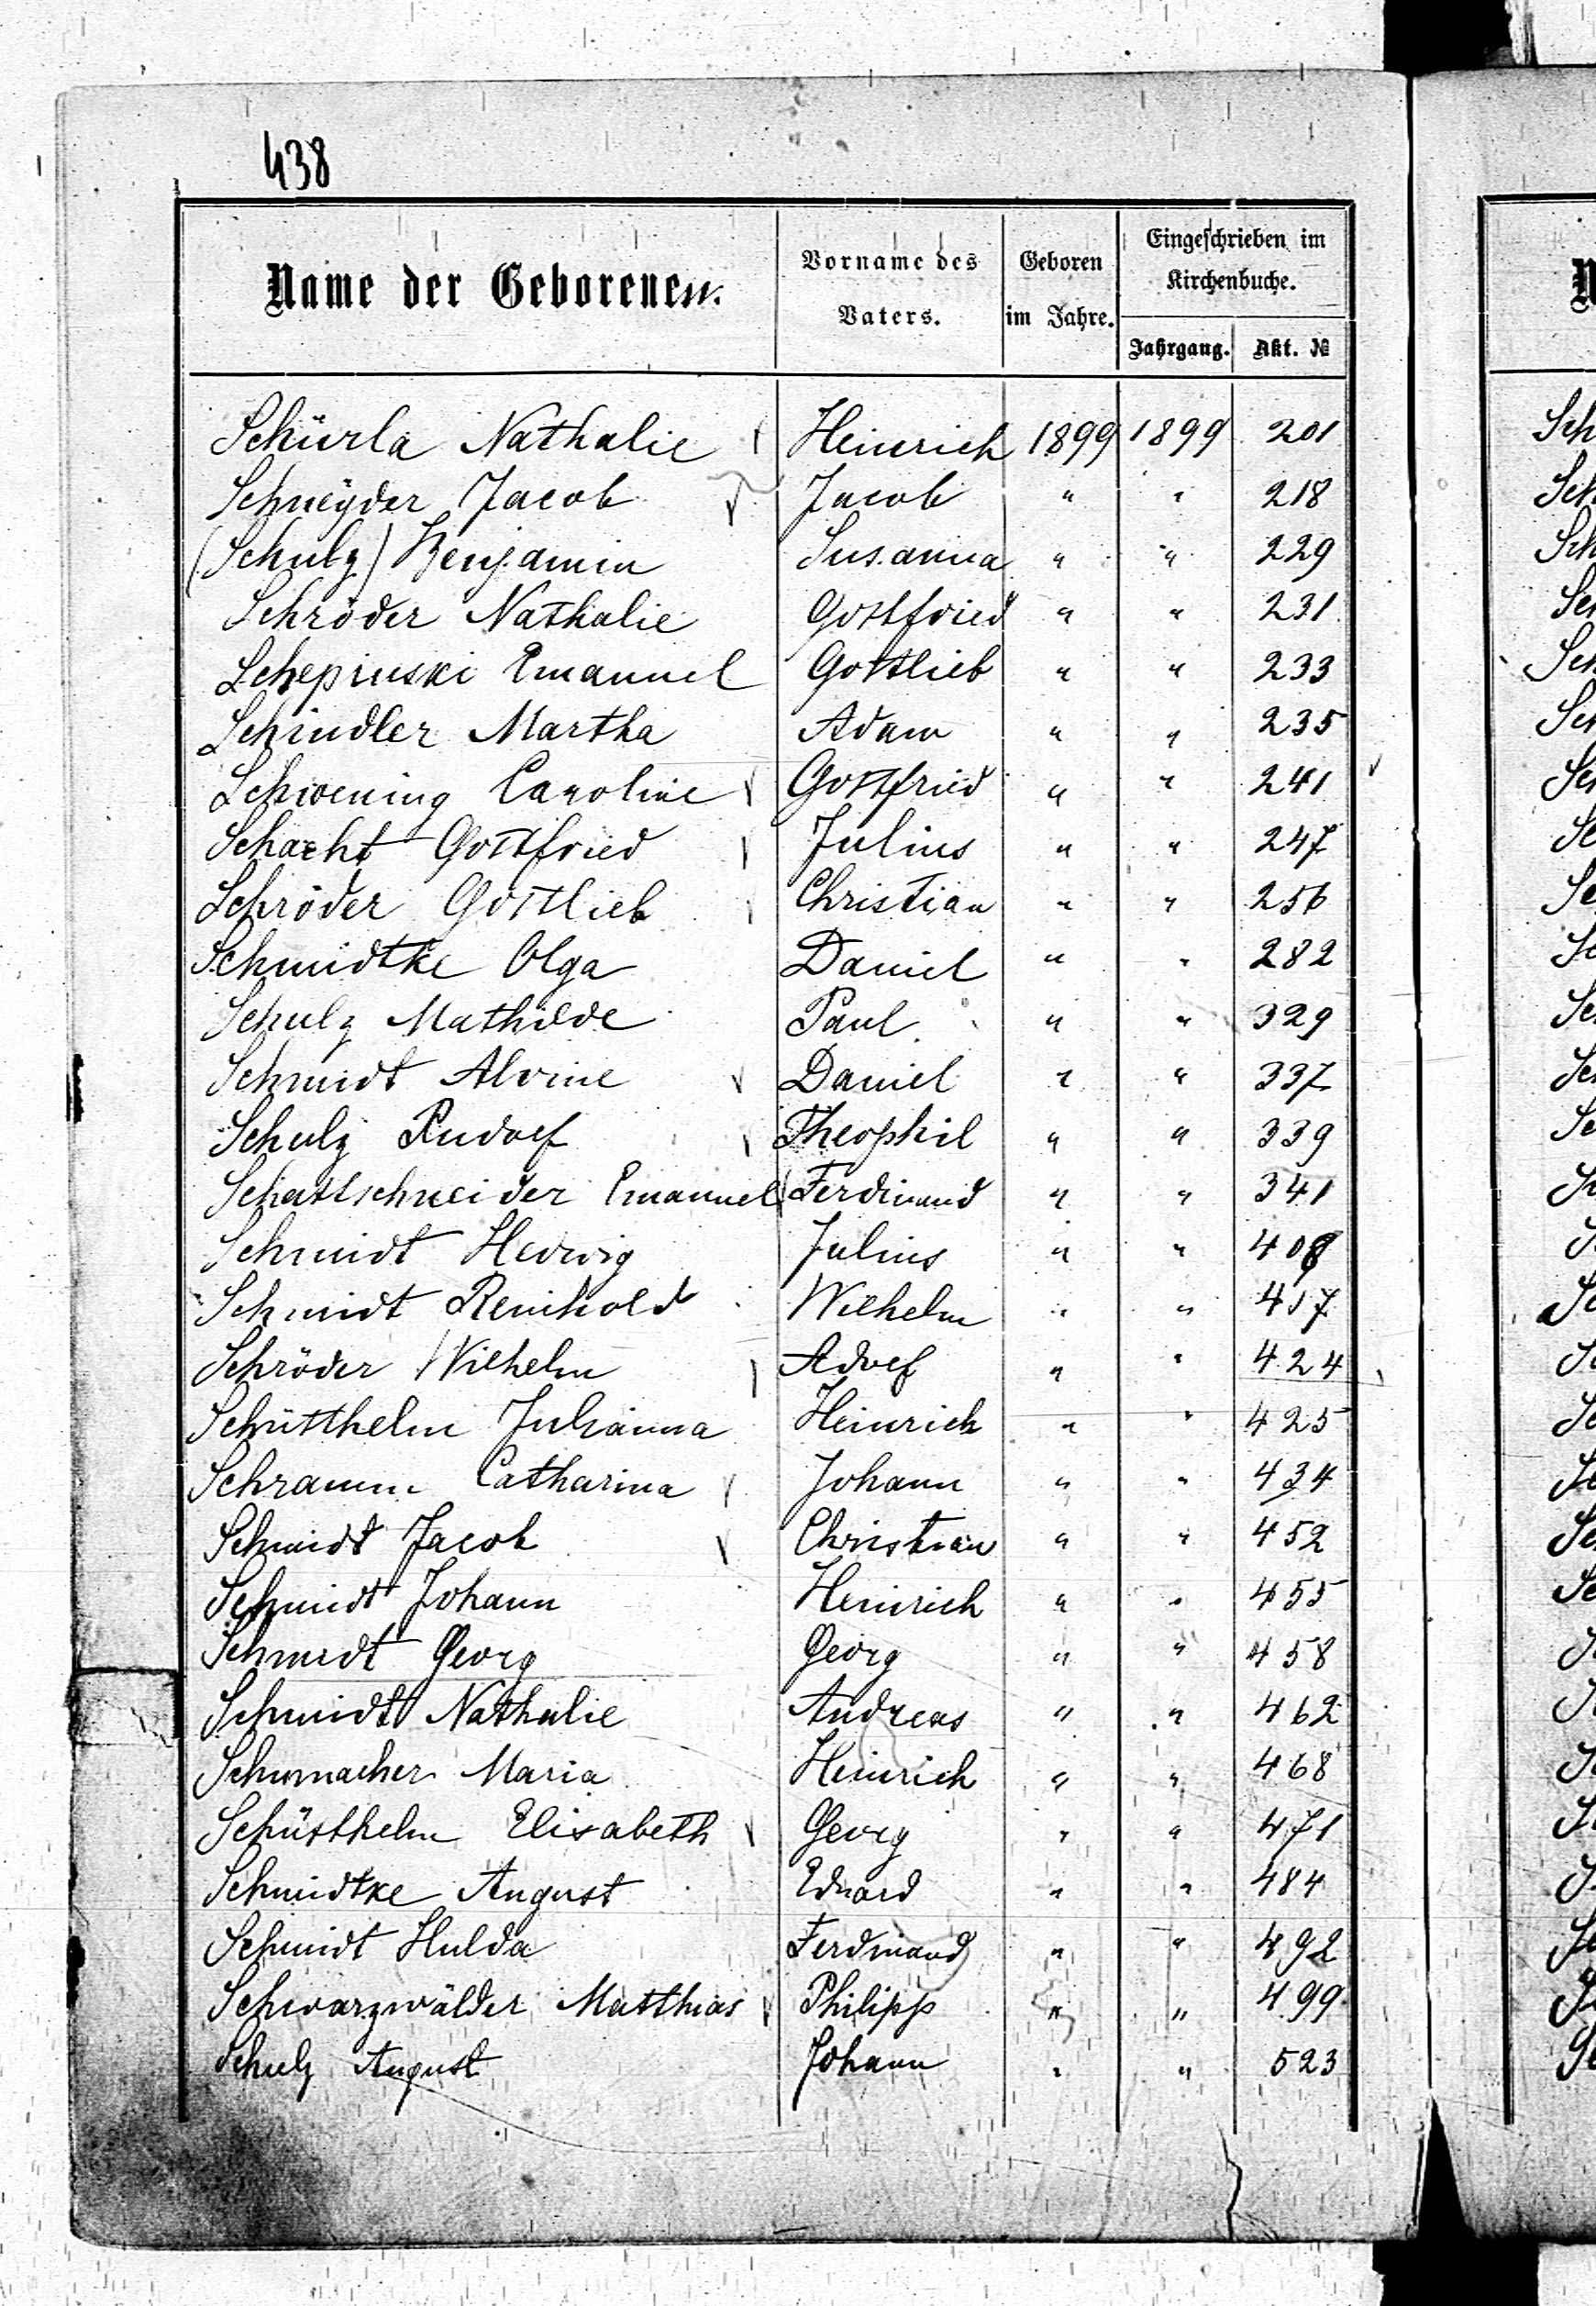 438
Name der Geborenen.
Vorname des Vaters.
Geboren im Jahre.
Eingeschrieben im Kirchenbuche.
Jahrgang. Akt. №
Schürla Nathalie Heinrich 1899 1899 201
Schneyder Jacob Jacob " " 218
(Schulz) Benjamin Susanna " " 229
Schröder Nathalie Gottfried " " 231
Schepinski Emanuel Gottlieb " " 233
Schindler Martha Adam " " 235
Schwening Caroline Gottfried " " 241
Schacht Gottfried Julius " " 247
Schröder Gottlieb Christian " " 256
Schmidtke Olga Daniel " " 282
Schulz Mathilde Paul " " 329
Schmidt Alvine Daniel " " 337
Schulz Rudolf Theophil " " 339
Schattschneider Emanuel Ferdinand " " 341
Schmidt Hedwig Julius " " 408
Schmidt Reinhold Wilhelm " " 417
Schröder Wilhelm Adolf " " 424
Schütthelm Julianna Heinrich " " 425
Schramm Catharina Johann " " 434
Schmidt Jacob Christian " " 452
Schmidt Johann Heinrich " " 455
Schmidt Georg Georg " " 458
Schmidt Nathalie Andreas " " 462
Schumacher Maria Heinrich " " 468
Schütthelm Elisabeth Georg " " 471
Schmidtke August Eduard " " 484
Schmidt Hulda Ferdinand " " 492
Schwarzwälder Matthias Philipp " " 499
Schulz August Johann " " 523